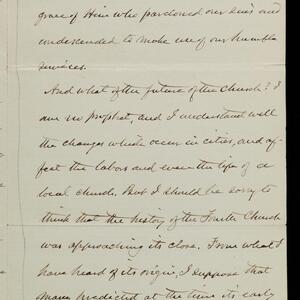 grace of Him who pardoned our sins and
condescended to make use of our humble
services.
And what of the future of the Church? I
am no prophet, and I understand well
the changes which occur in cities, and af-
fect the labors and even the life of a
local church. But I should be sorry to
think that the history of the Fourth Church
was approaching its close. From what I
have heard of its origin, I suppose that
many predicted at the time its early